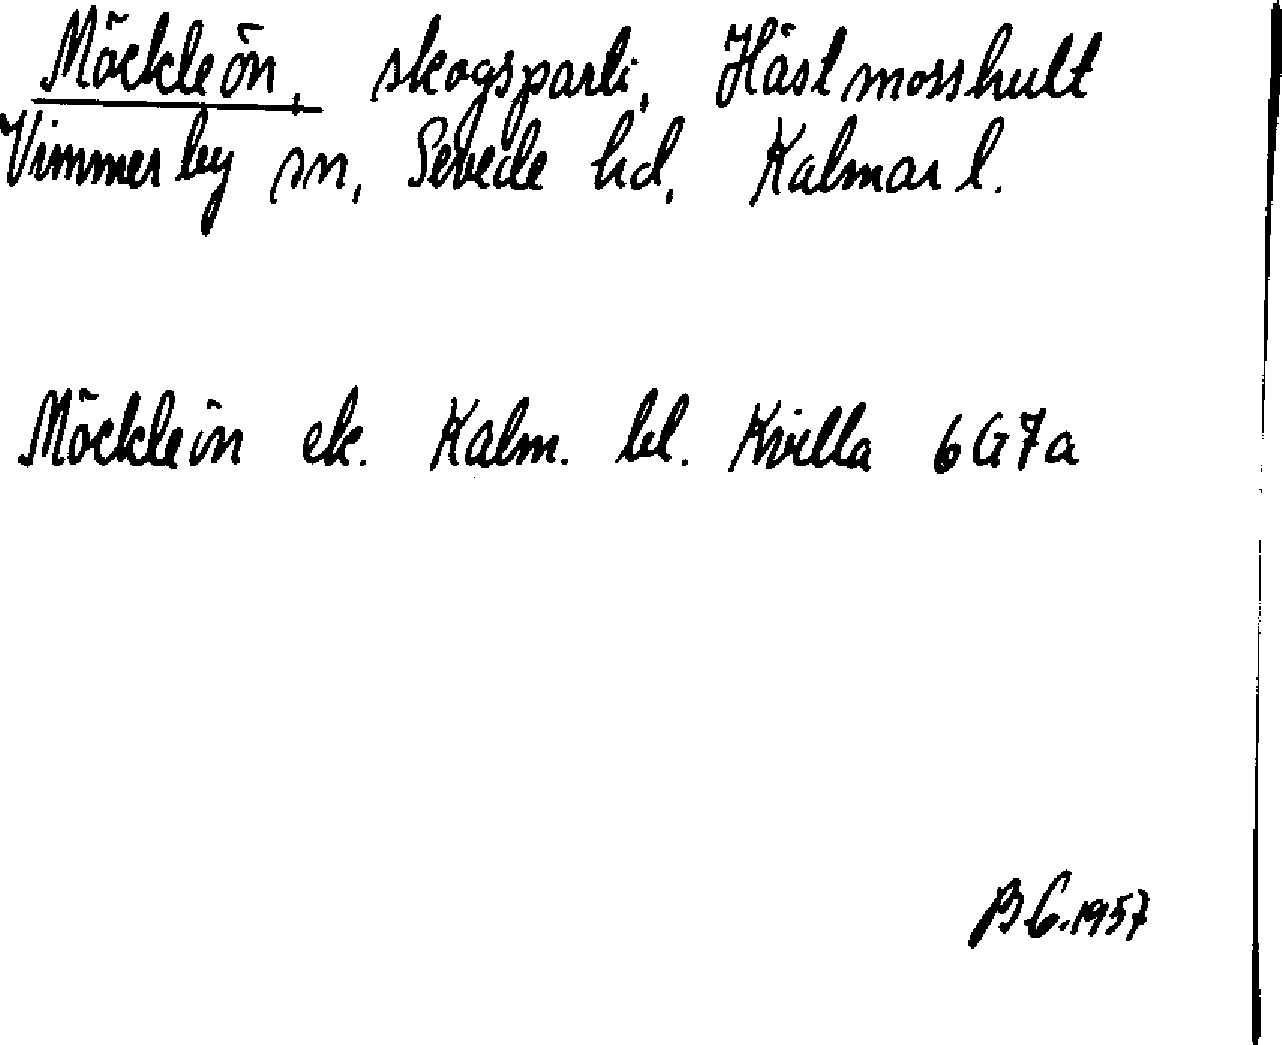 Möckleön, skogsparti, Hästmosshult
Vimmerby sn, Sevede hd, Kalmar l.
Möckleön ek. Kalm. bl. Kvilla 6G7a
BG.1957